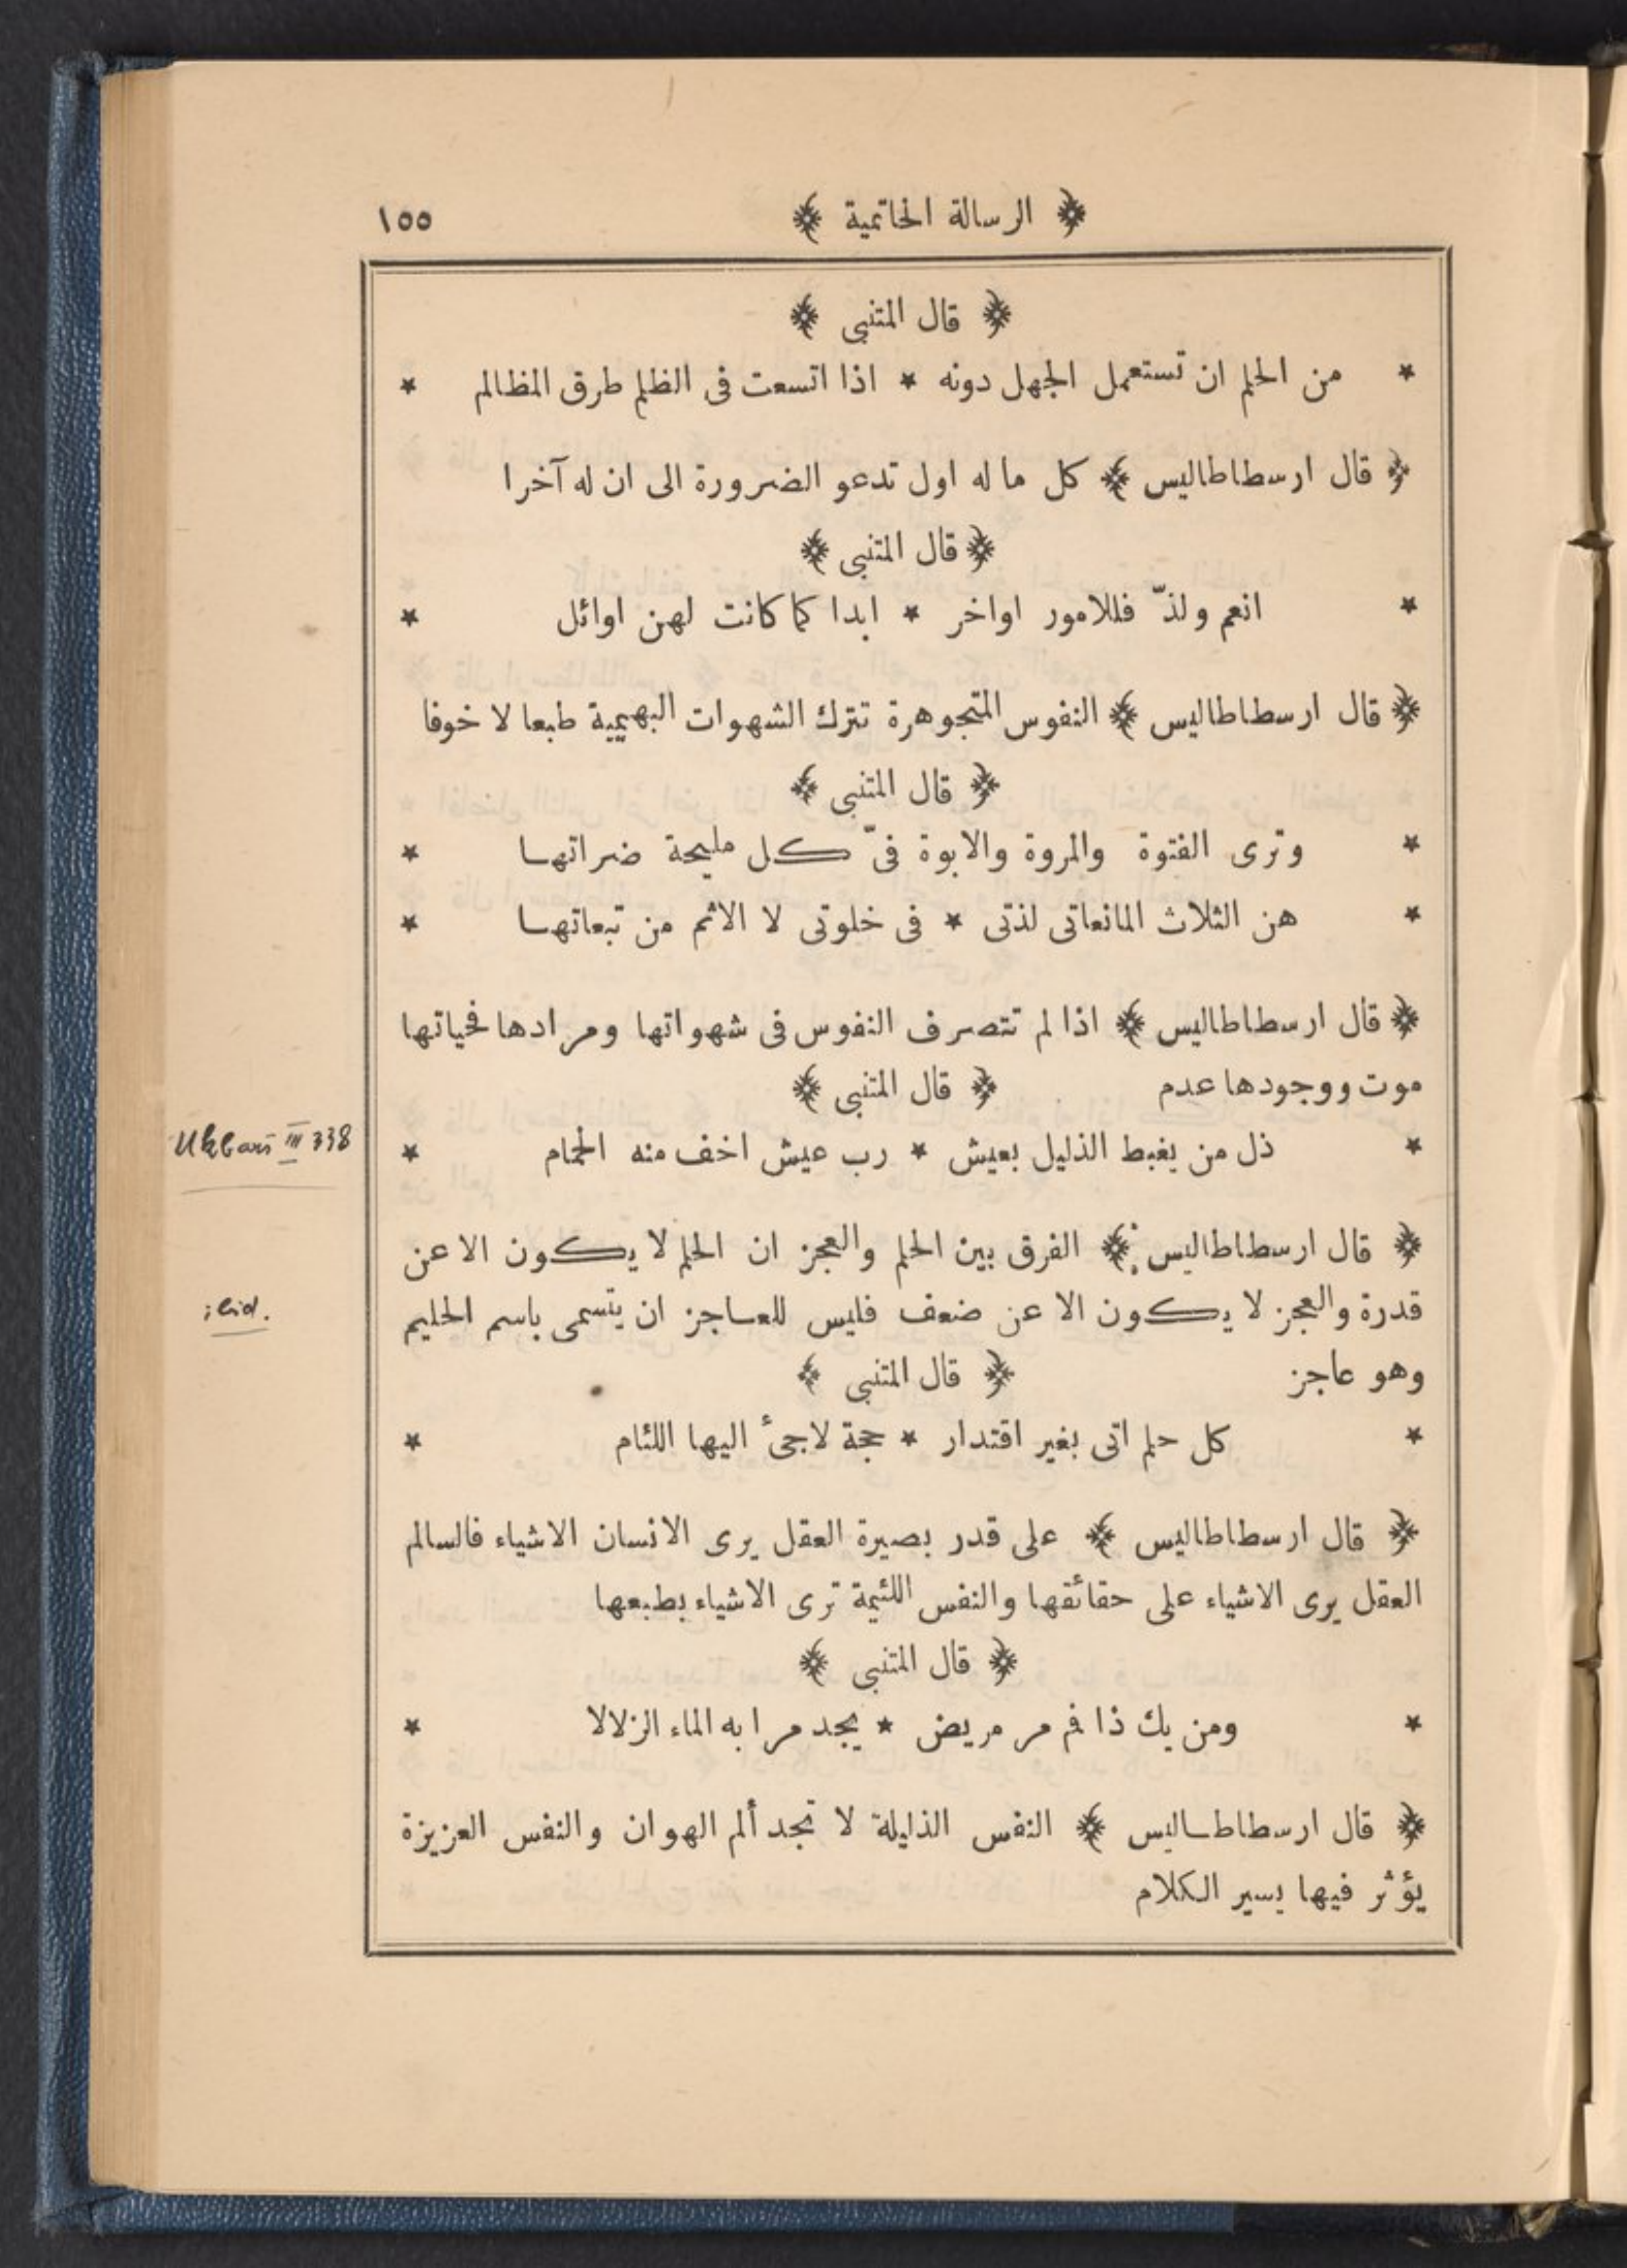 ﴿ الرسالة الحاتمية ﴾ ١٥٥
﴿ قال المتنبى ﴾
* من الحلم ان تستعمل الجهل دونه * اذا اتسعت فى الظلم طرق المظالم *
﴿ قال ارسطاطاليس ﴾ كل ما له اول تدعو الضرورة الى ان له آخرا
﴿ قال المتنبى ﴾
* انعم ولذّ فللامور اواخر * ابدا كما كانت لهن اوائل *
﴿ قال ارسطاطاليس ﴾ النفوس المتجوهرة تترك الشهوات البهيمية طبعا لا خوفا
﴿ قال المتنبى ﴾
* وترى الفتوة والمروة والابوة فىّ كل مليحة ضراتها *
* هن الثلاث المانعاتى لذتى * فى خلوتى لا الاثم من تبعاتها *
﴿ قال ارسطاطاليس ﴾ اذا لم تتصرف النفوس فى شهواتها ومرادها فحياتها
موت ووجودها عدم ﴿ قال المتنبى ﴾
* ذل من يغبط الذليل بعيش * رب عيش اخف منه الحمام *
Ukbari III 338
﴿ قال ارسطاطاليس ﴾ الفرق بين الحلم والعجز ان الحلم لا يكون الا عن
قدرة والعجز لا يكون الا عن ضعف فليس للعاجز ان يتسمى باسم الحليم
ibid.
وهو عاجز ﴿ قال المتنبى ﴾
* كل حلم اتى بغير اقتدار * حجة لاجئ اليها اللئام *
﴿ قال ارسطاطاليس ﴾ على قدر بصيرة العقل يرى الانسان الاشياء فالسالم
العقل يرى الاشياء على حقائقها والنفس اللئيمة ترى الاشياء بطبعها
﴿ قال المتنبى ﴾
* ومن يك ذا فم مر مريض * يجد مرا به الماء الزلالا *
﴿ قال ارسطاطاليس ﴾ النفس الذليلة لا تجد ألم الهوان والنفس العزيزة
يؤثر فيها يسير الكلام